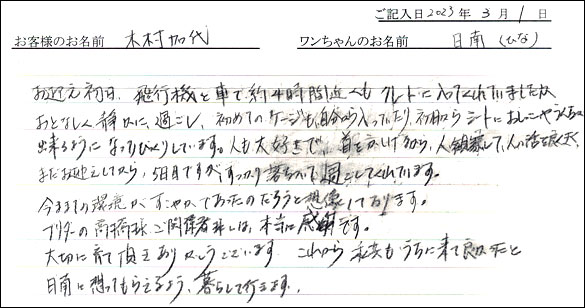 ご記入日 2023 年 3 月 1 日
お客様のお名前 木村加代 ワンちゃんのお名前 日南(ひな)
お迎え初日、飛行機と車で約4時間近くもクレートに入ってくれていましたが
おとなしく静かに過ごし、初めてのケージも自分から入ったり、初日からシートにおしっこやうんちも
出来るようになってびっくりしています。人も大好きで、首をかしげながら、人を観察して、人の話を
まだお迎えしてから、5日目ですが、すっかり落ちついて過ごしてくれています。
今までの環境がすこやかであったのだろうと想像しております。
ブリーダーの高橋様、ご関係者様には、本当に感謝です。
大切に育て頂きありがとうございます。これから私共もうちに来て良かったと
日南に想ってもらえるよう、暮らして行きます。